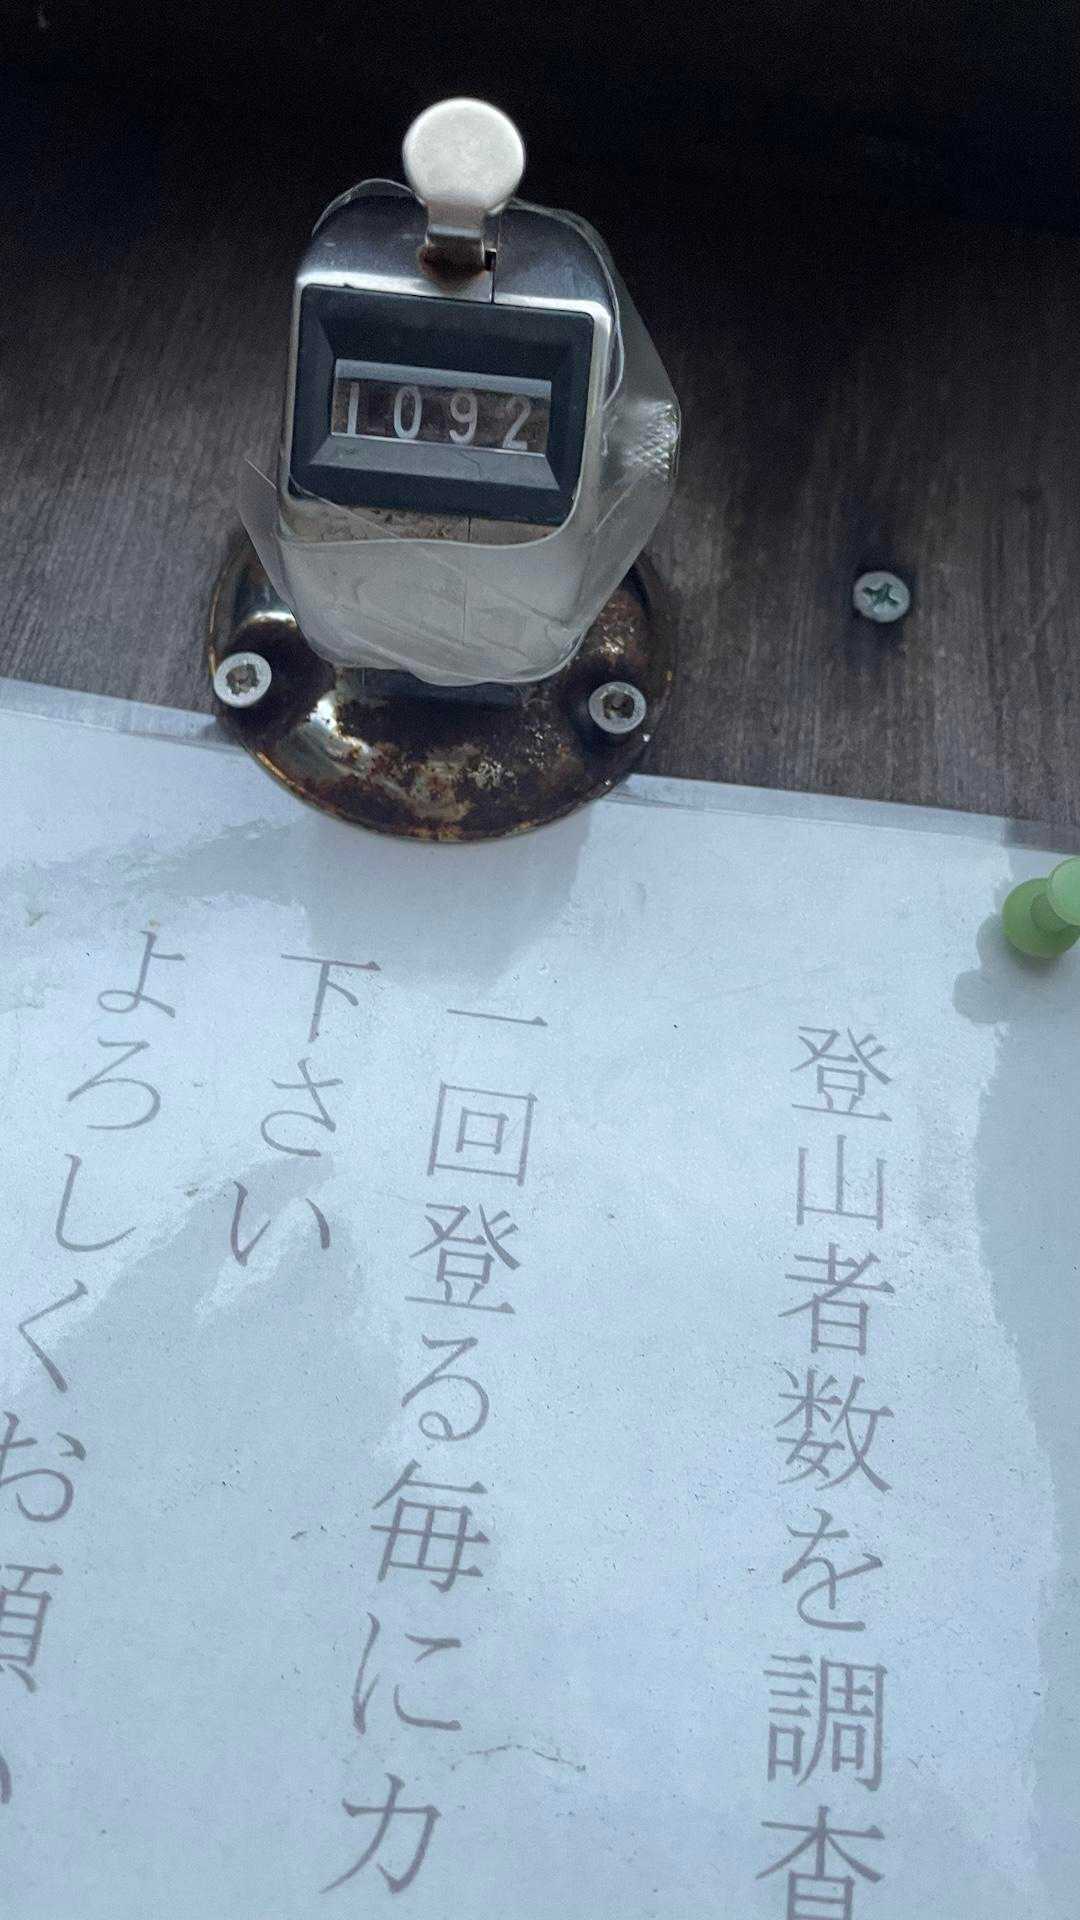 1092
登山者数を調査
一回登る毎にカ
下さい
よろしくお願い